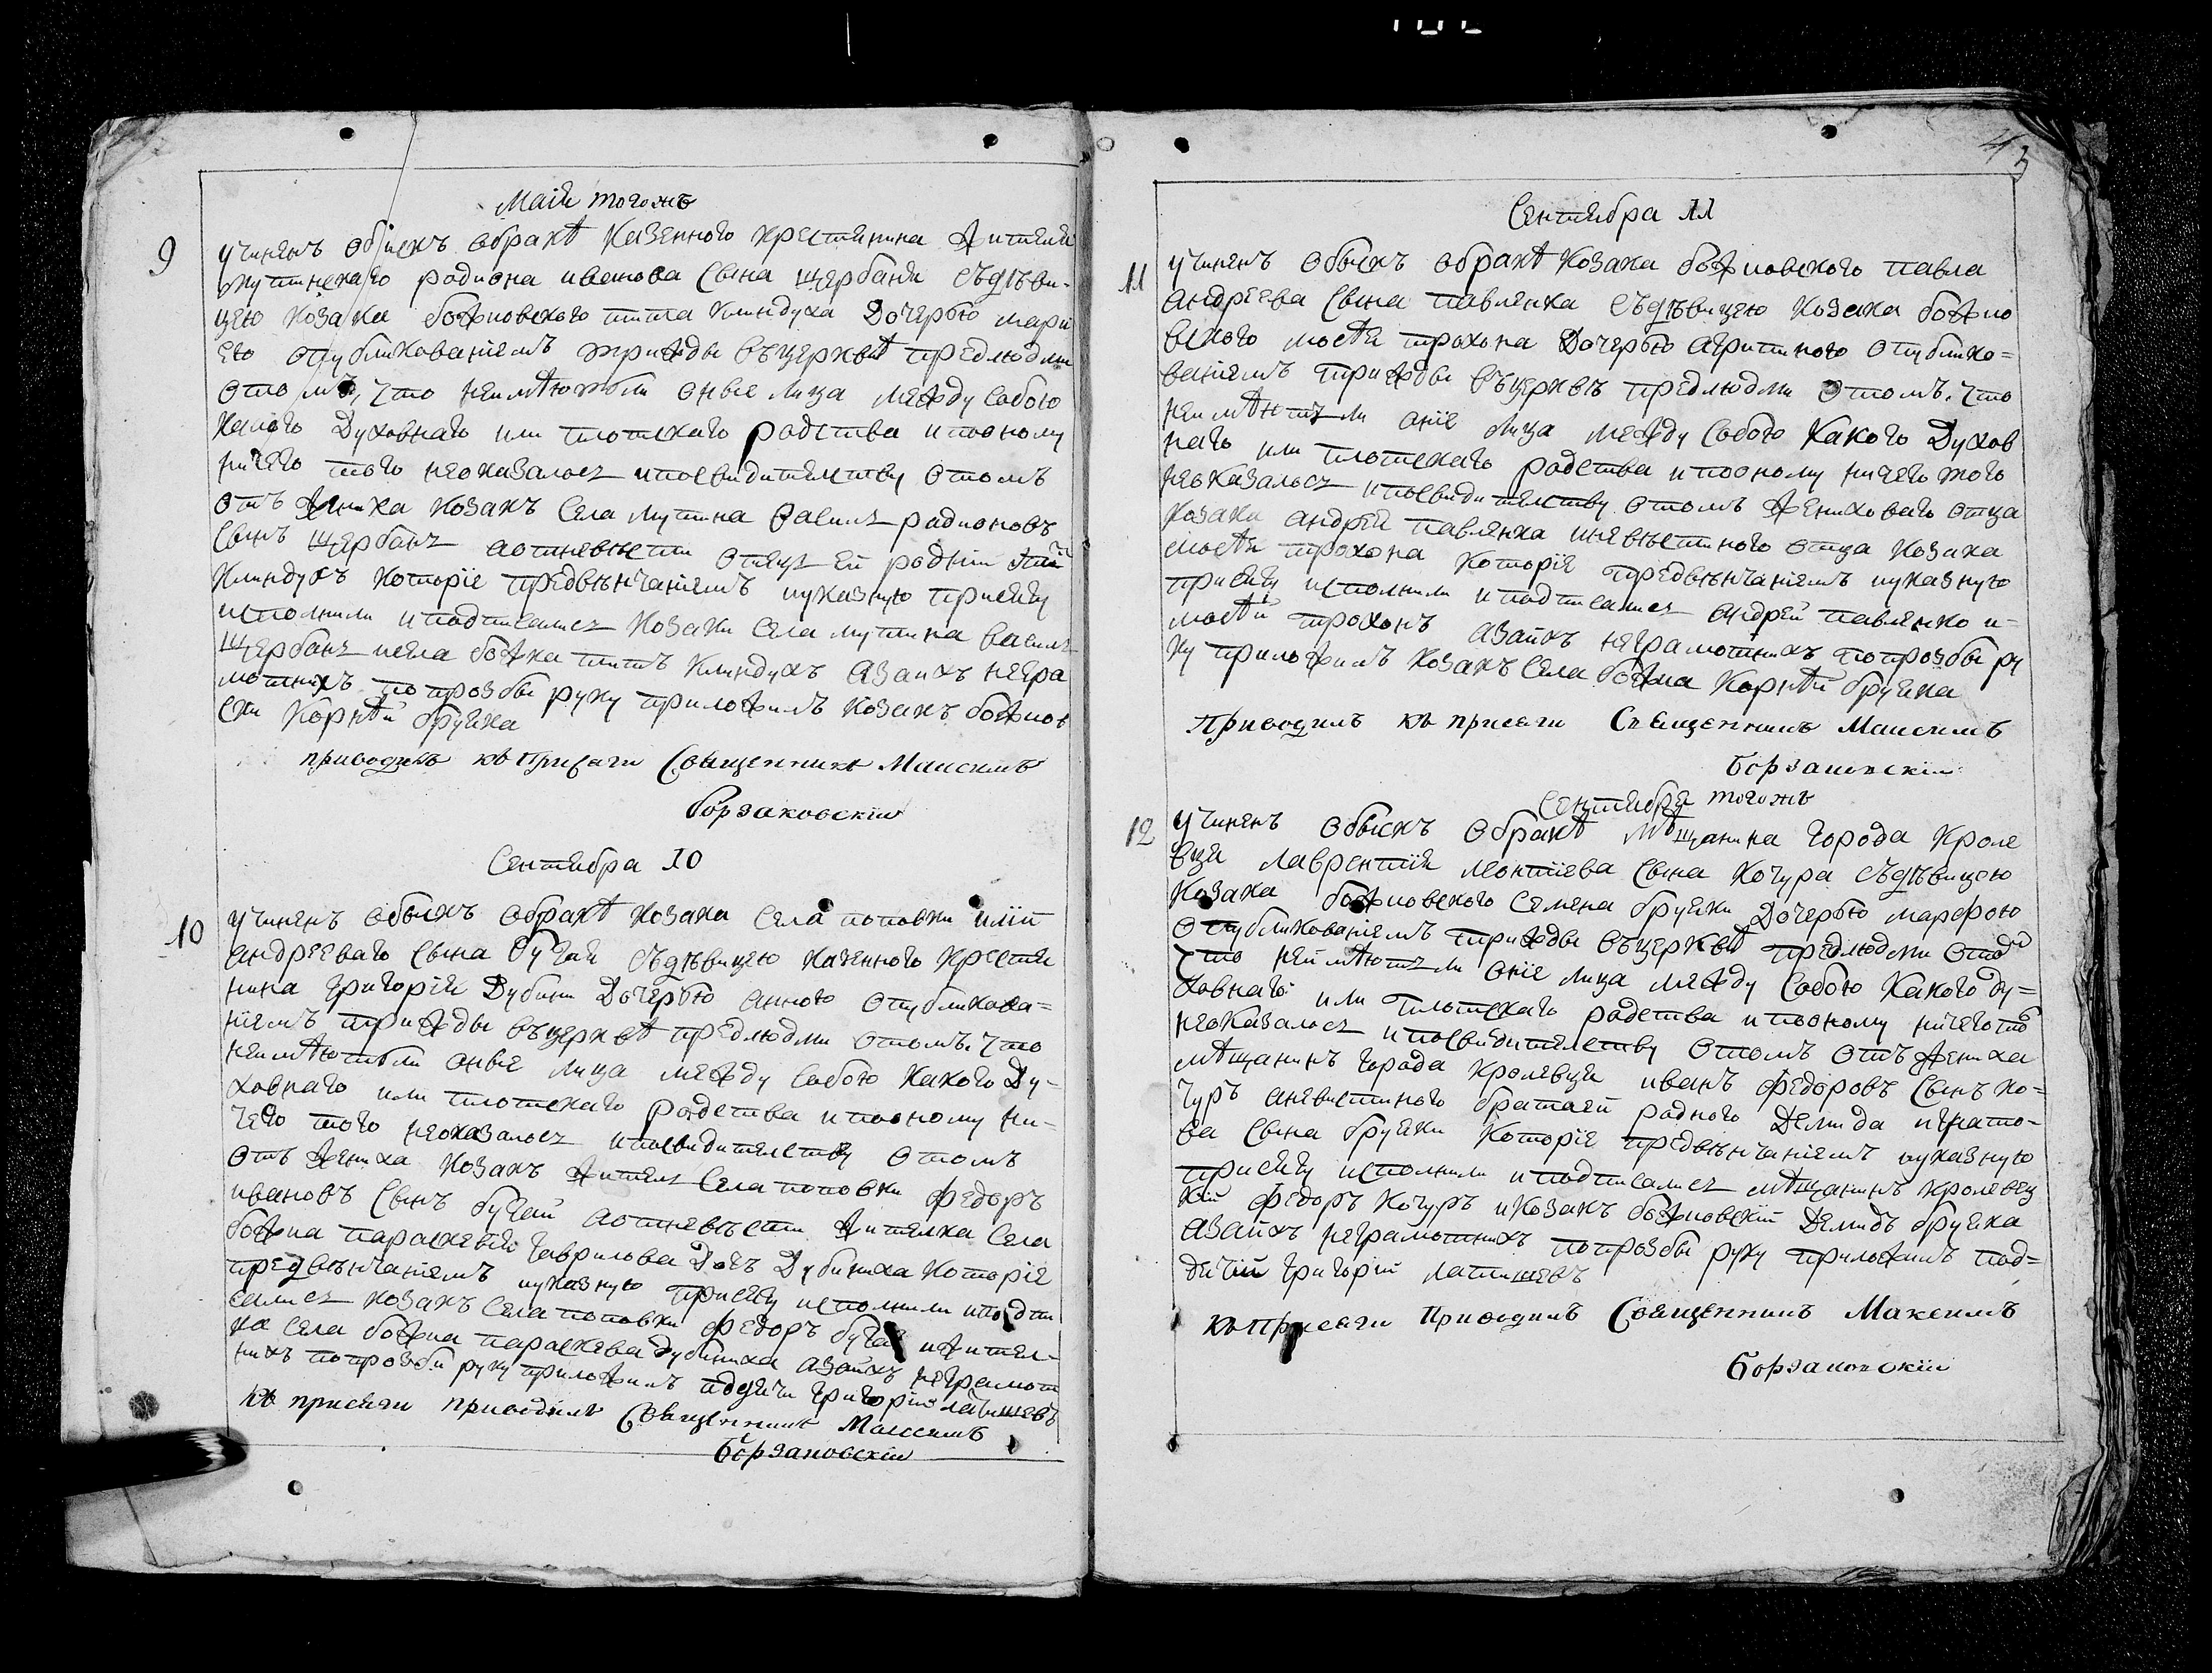 Маія тогожъ
9
Учиненъ обыскъ обракѣ казенного крестянина жителя
мутинскаго родиона иванова сына щербаня съдѣви-
цею козака божковского тита клиндуха дочерью марі
ею опубликованіемъ трижды въцерквѣ предлюдми
отомъ, что неимѣютъли оные лица между собою
какого духовнаго или плотскаго родства ипооному
ничего того неоказалось ипосвидителству отомъ
отъ жениха козакъ села мутина василь родионовъ
сынъ щербань аотневѣсти отецъ ей родній титъ
клиндухъ которіе предвѣнчаніемъ иуказную присягу
исполнили иподписались козаки села мутина василь
щербань исела божка титъ клиндухъ азаихъ негра
мотнихъ попрозби руку приложилъ козакъ божков
ски Корнѣй бруяка
приводилъ къ присяги Священникъ Максимъ
Борзаковскій
Сентября 10
10
Учиненъ обыскъ обракѣ козака села поповки иліи
андрееваго сына бугая съдѣвицею казенного крестя
нина григорія дубини дочерью анною опубликова-
ніемъ трижды въцерквѣ предлюдми отомъ. что
неимѣютъли оные лица между собою какого ду-
ховнаго или плотскаго родства ипооному ни-
чего того неоказалось ипосвидителству отомъ
отъ жениха козакъ житель села поповки федоръ
ивановъ сынъ бугай аотневѣсти жителка села
божка параскевія гаврилова дочь дубиниха которіе
предвѣнчаніемъ иуказную присягу исполнили иподпи
сались козакъ села поповки федоръ бугай ижител-
ка села божка параскева дубиниха азаихъ неграмот
нихъ попрозби руку приложилъ подячи григорій латишевъ
къ присяги приводилъ Священникъ Максимъ
Борзаковскій
Сентября 11
11
Учиненъ обыскъ обракѣ козака божковского павла
андреева сына павленка съдѣвицею козака божко
вского мосѣя трохона дочерью агрипиною опублико=
ваніемъ трижды въцерквѣ предлюдми отомъ. что
неимѣютъли оніе лица между собою какого духов
наго или плотскаго родства ипооному ничего того
неоказалось ипосвидителству отомъ жениховаго отца
козака андрей павленка иневѣстиного отца козака
мосѣя трохона которіе предвѣнчаніемъ иуказную
присягу исполнили иподписались андрей павленко и-
мосѣй трохонъ азаихъ неграмотнихъ попрозби ру
ку приложилъ козакъ села божка Корнѣй бруяка
Приводилъ къ присяги Священникъ Максимъ
Борзаковскій
Сентября тогожъ
12
Учиненъ обыскъ обракѣ мѣщанина города Кроле
вца лаврентія леонтіева сына кочура съдѣвицею
козака божковского семена бруяки дочерью марфою
опубликованіемъ трижды въцерквѣ предлюдми отом
что неимѣютъли оніе лица между собою какого ду=
ховнаго или плотскаго родства ипооному ничего того
неоказалось ипосвидителству отомъ отъ жениха
мѣщанинъ города кролевця иванъ федоровъ сынъ ко=
чуръ аневистиного братаей родного демида игнато-
ва сына бруяки которіе предвѣнчаніемъ иуказную
присягу исполнили иподписались мѣщанинъ кролевец
кій федоръ кочуръ икозакъ божковскій демидъ бруяка
азаихъ неграмотнихъ попрозби руку приложилъ под=
дячій григорій латишевъ
къ присяги приводилъ Священникъ Максимъ
Борзаковскій